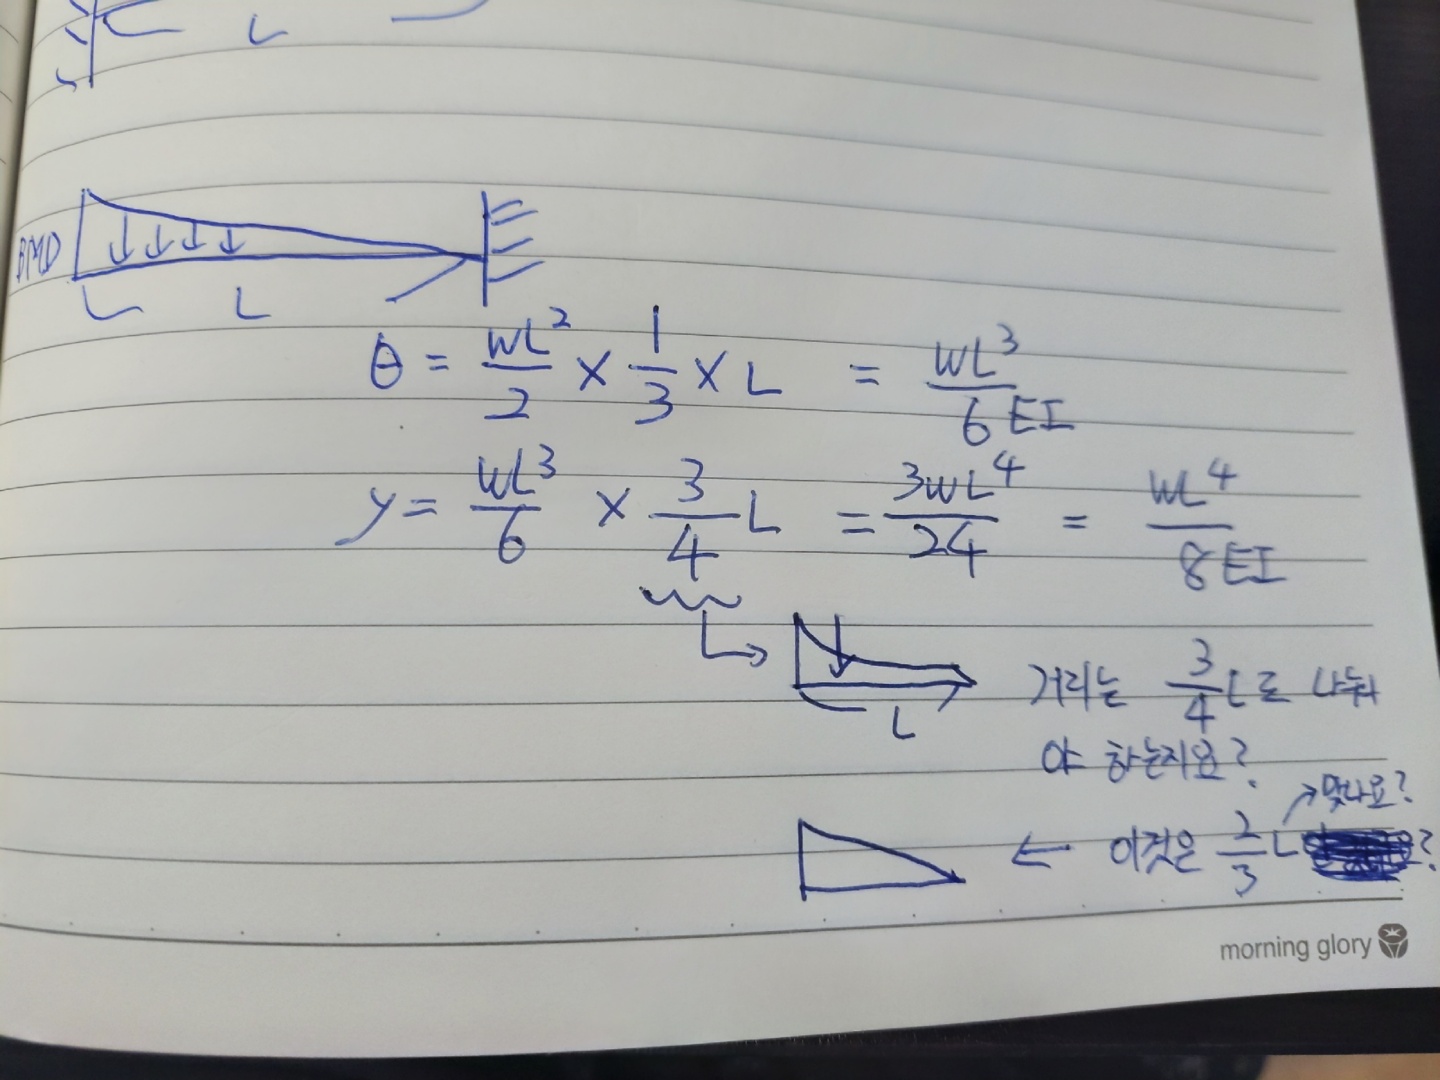 L
BMD
L
θ = wL²/2 × 1/3 × L = wL³/6EI
y = wL³/6 × 3/4 L = 3wL⁴/24 = wL⁴/8EI
거리는 3/4 L로 나눠
L
야 하는지요?
맞나요?
← 이것은 2/3 L ?
morning glory